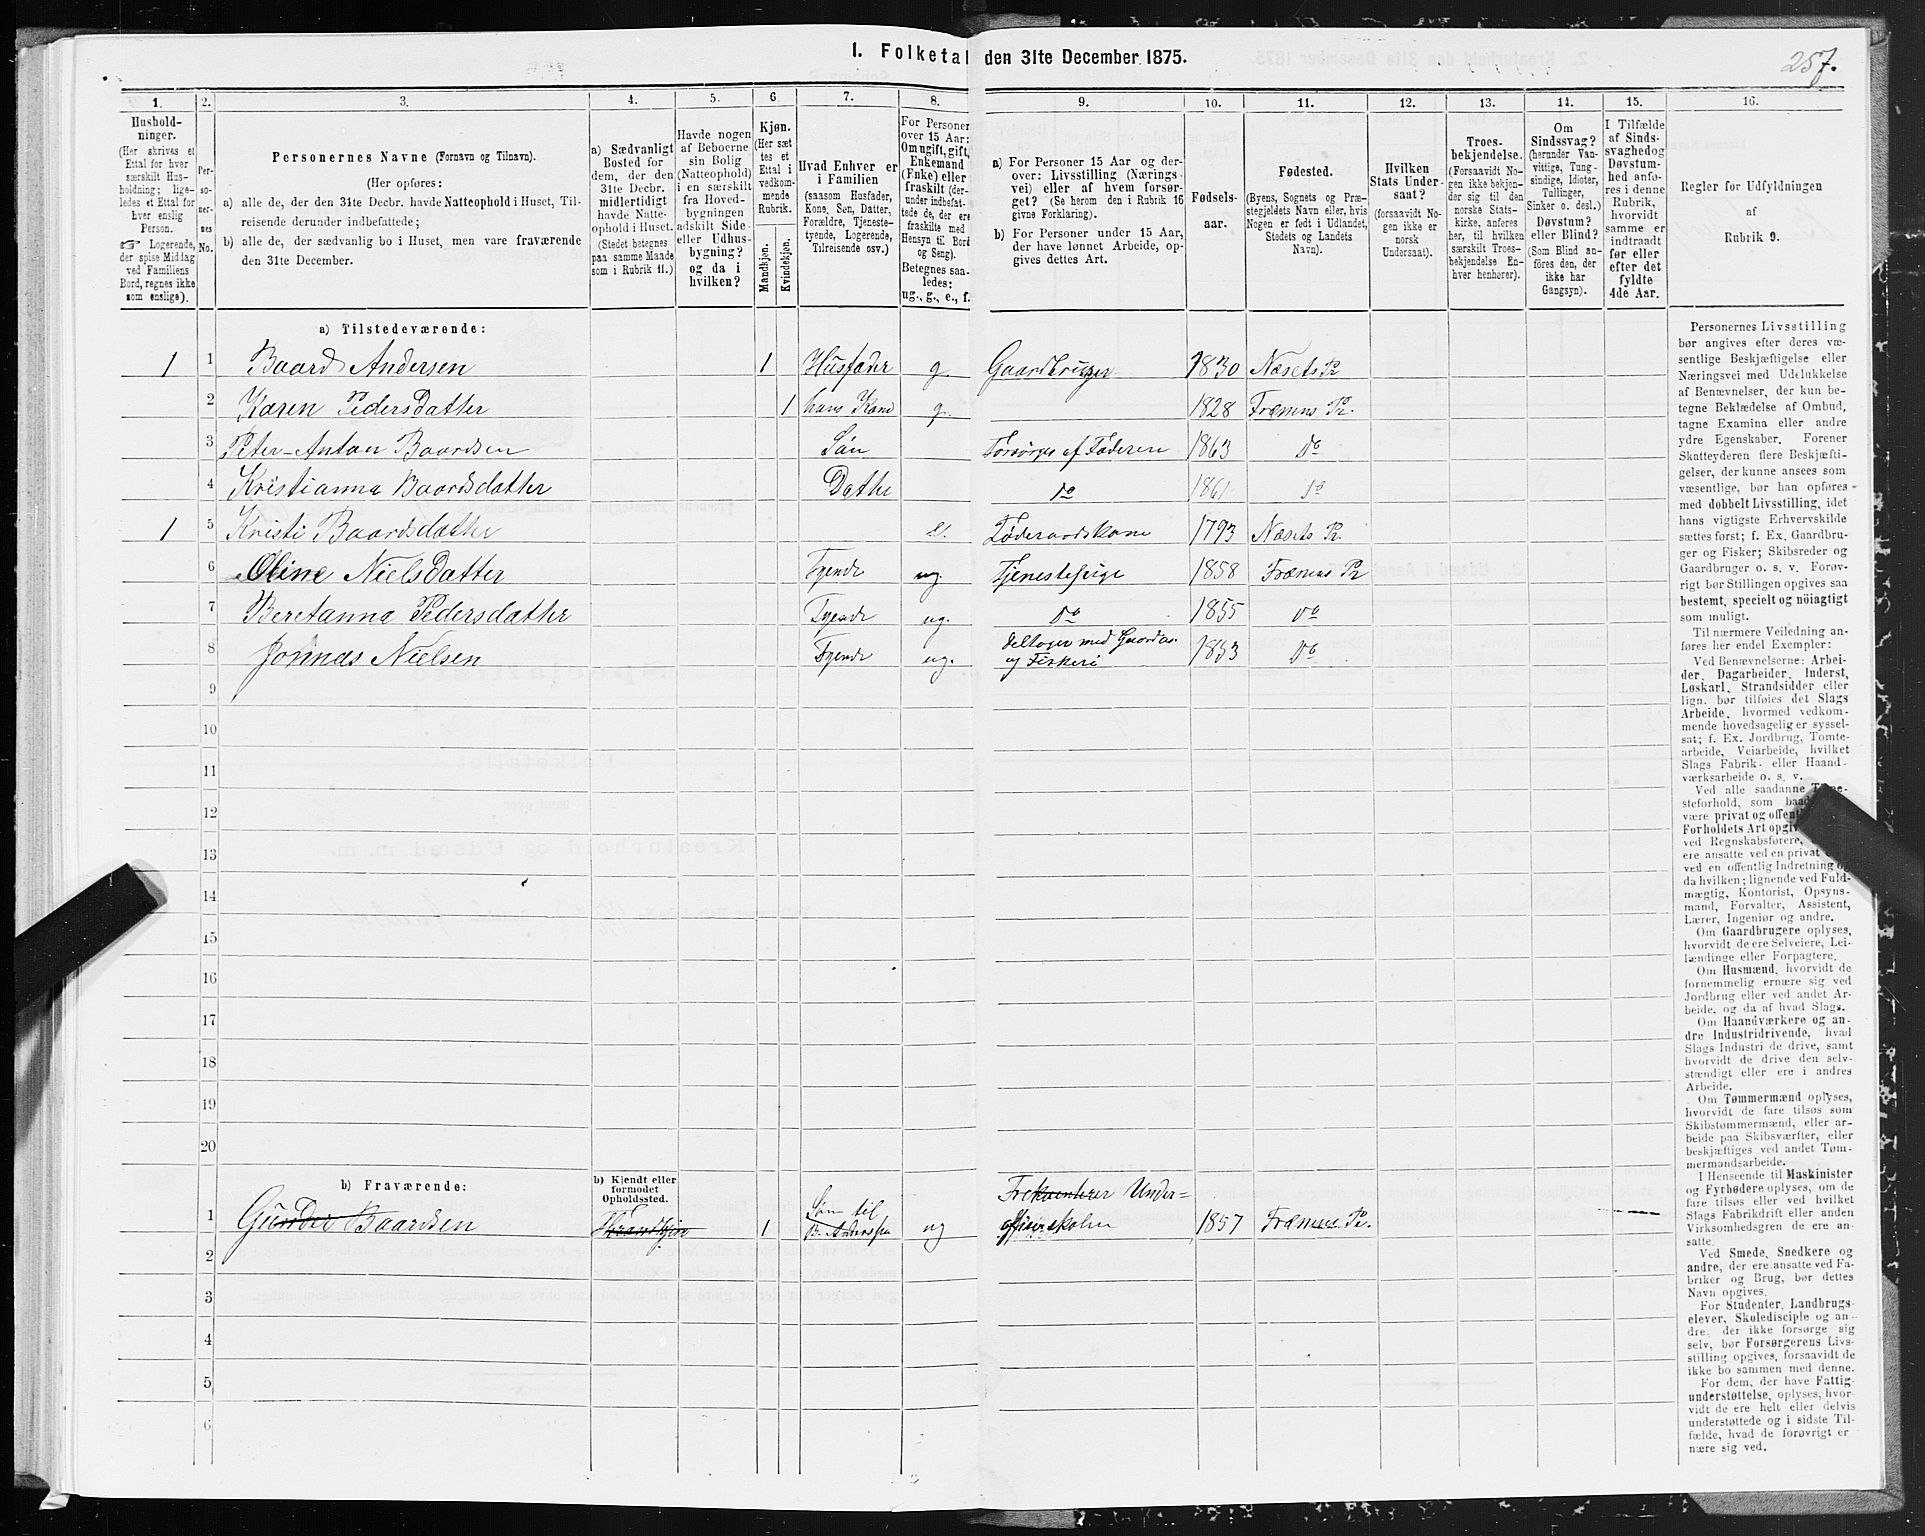 I. Folketal den 31te December 1875.
257.
1. 2. 3. 4. 5. 6 7. 8. 9. 10. 11. 12. 13. 14. 15. 16.
Husholdninger. (Her skrives et Ettal for hver særskilt Husholdning; ligeledes et Ettal for hver enslig Person. ☞ Logerende, der spise Middag ved Familiens Bord, regnes ikke som enslige).
Personernes No.
Personernes Navne (Fornavn og Tilnavn).
(Her opføres:
a) alle de, der den 31te Decbr. havde Natteophold i Huset, Tilreisende derunder indbefattede;
b) alle de, der sædvanlig bo i Huset, men vare fraværende den 31te December.
a) Sædvanligt Bosted for dem, der den 31te Decbr. midlertidigt havde Natteophold i Huset. (Stedet betegnes paa samme Maade som i Rubrik 11.)
Havde nogen af Beboerne sin Bolig (Natteophold) i en særskilt fra Hovedbygningen adskilt Side- eller Udhusbygning? og da i hvilken?
Kjøn. (Her sættes et Ettal i vedkommende Rubrik.
Mandkjøn.
Kvindekjøn.
Hvad Enhver er i Familien (saasom Husfader, Kone, Søn, Datter, Forældre, Tjenestetyende, Logerende, Tilreisende osv.)
For Personer over 15 Aar: Om ugift, gift, Enkemand (Enke) eller fraskilt (derunder indbefattede de, der ere fraskilte med Hensyn til Bord og Seng). Betegnes saaledes: ug., g., e., f.
a) For Personer 15 Aar og derover: Livsstilling (Næringsvei) eller af hvem forsørget? (Se herom den i Rubrik 16 givne Forklaring).
b) For Personer under 15 Aar, der have lønnet Arbeide, opgives dettes Art.
Fødselsaar.
Fødested. (Byens, Sognets og Præstegjeldets Navn eller, hvis Nogen er født i Udlandet, Stedets og Landets Navn).
Hvilken Stats Undersaat? (forsaavidt Nogen ikke er norsk Undersaat).
Troesbekjendelse. (Forsaavidt Nogen ikke bekjender sig til den norske Statskirke, anføres her, til hvilken særskilt Troesbekjendelse Enhver henhører).
Om Sindssvag? (herunder Vanvittige, Tungsindige, Idioter, Tullinger, Sinker o. desl.) Døvstum? eller Blind? (Som Blind anføres den, der ikke har Gangsyn).
I Tilfælde af Sindssvaghed og Døvstumhed anføres i denne Rubrik, hvorvidt samme er indtraadt før eller efter det fyldte 4de Aar.
Regler for Udfyldningen af Rubrik 9.
a) Tilstedeværende:
1 1 Baard Andersen 1 Husfader g. Gaardbruger 1830 Næsets Pr
2 Karen Pedersdatter 1 hans Kone g. 1828 Frænens Pr.
3 Peter-Anton Baardsen Søn Forsørges af Faderen 1863 Do
4 Kristianna Baardsdatter Datter Do 1861 Do
1 5 Kristi Baardsdatter e. Føderaadskone 1793 Næsets Pr.
6 Oline Nielsdatter Tyende ug. Tjenestepige 1858 Frænens Pr
7 Beretanna Pedersdatter Tyende ug. Do 1855 Do
8 Jonnas Nielsen Tyende ug. deltager med Gaardsar. og Fiskeri 1853 Do
9
10
11
12
13
14
15
16
17
18
19
20
b) Fraværende:
b) Kjendt eller formodet Opholdssted.
1 Gunder Baardsen Thrandhjem 1 Søn til B. Anderssen ug Frekventerer Underofficerskolen 1857 Frænens Pr.
2
3
4
5
6
Personernes Livsstilling bør angives efter deres væsentlige Beskjæftigelse eller Næringsvei med Udelukkelse af Benævnelser, der kun betegne Beklædelse af Ombud, tagne Examina eller andre ydre Egenskaber. Forener Skatteyderen flere Beskjæftigelser, der kunne ansees som væsentlige, bør han opføres med dobbelt Livsstilling, idet hans vigtigste Erhvervskilde sættes først; f. Ex. Gaardbruger og Fisker; Skibsreder og Gaardbruger o. s. v. Forøvrigt bør Stillingen opgives saa bestemt, specielt og nöiagtigt som muligt.
Til nærmere Veiledning anføres her endel Exempler:
Ved Benævnelserne: Arbeider, Dagarbeider, Inderst, Løskarl, Strandsidder eller lign. bør tilføies det Slags Arbeide, hvormed vedkommende hovedsagelig er sysselsat; f. Ex. Jordbrug, Tomtearbeide, Veiarbeide, hvilket Slags Fabrik- eller Haandværksarbeide o. s. v.
Ved alle saadanne
steforhold, som
være privat og
Forholdets Art
ved Regnskabsførere,
ere ansatte ved en privat
ved en offentlig Indretning og da hvilken; lignende ved Fuldmægtig, Kontorist, Opsynsmand, Forvalter, Assistent, Lærer, Ingeniør og andre.
Om Gaardbrugere oplyses, hvorvidt de ere Selveiere, Leilændinge eller Forpagtere.
Om Husmænd, hvorvidt de fornemmelig ernære sig ved Jordbrug eller ved andet Arbeide, og da af hvad Slags.
Om Haandværkere og andre Industridrivende, hvad Slags Industri de drive, samt hvorvidt de drive den selvstændigt eller ere i andres Arbeide.
Om Tømmermænd oplyses, hvorvidt de fare tilsøs som Skibstømmermænd, eller arbeide paa Skibsværfter, eller beskjæftiges ved andet Tømmermandsarbeide.
I Henseende til Maskinister og Fyrbødere oplyses, om de fare tilsøs eller ved hvilket Slags Fabrikdrift eller anden Virksomhedsgren de ere ansatte.
Ved Smede, Snedkere og andre, der ere ansatte ved Fabriker og Brug, bør dettes Navn opgives.
For Studenter, Landbrugselever, Skoledisciple og andre, der ikke forsørge sig selv, bør Forsørgerens Livsstilling opgives, forsaavidt de ikke bo sammen med denne.
For dem, der have Fattigunderstøttelse, oplyses, hvorvidt de ere helt eller delvis understøttede og i sidste Tilfælde, hvad de forøvrigt ernære sig ved.